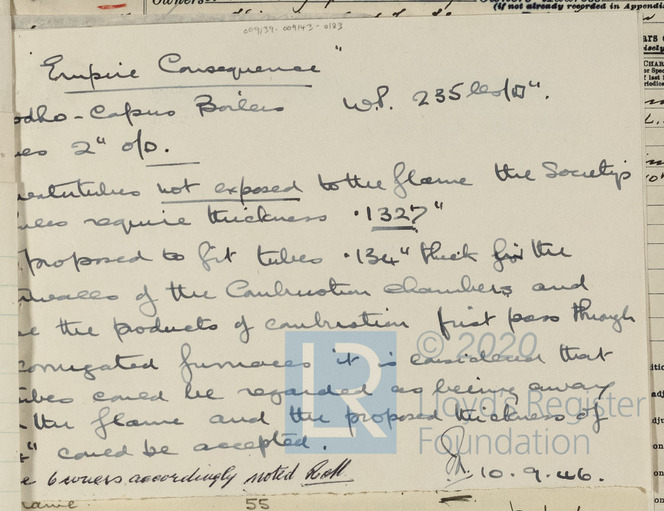 Owners
(if not already recorded in Appendi
009139-009143-0183
"Empire Consequence"
odho-Capus Boilers W.P. 235 lbs/□".
es 2" o/D.
not exposed to the flame the Society's
ules require thickness .1327"
proposed to fit tubes .134" thick for the
walls of the Combustion chambers and
e the products of combustion first pass through
corrugated furnaces it is considered that
ubes could be regarded as being away
the flame and the proposed thickness of
4" could be accepted.
e owners accordingly noted
10.9.46.
© 2020
LR
Lloyd's Register
Foundation
name
55